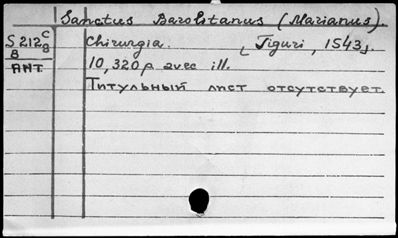 Sanctus Barolitanus (Marianus).
S 212 c/8
8
АНТ.
Chirurgia. [Tiguri, 1543].
10, 320 p avec ill.
Титульный лист отсутствует.